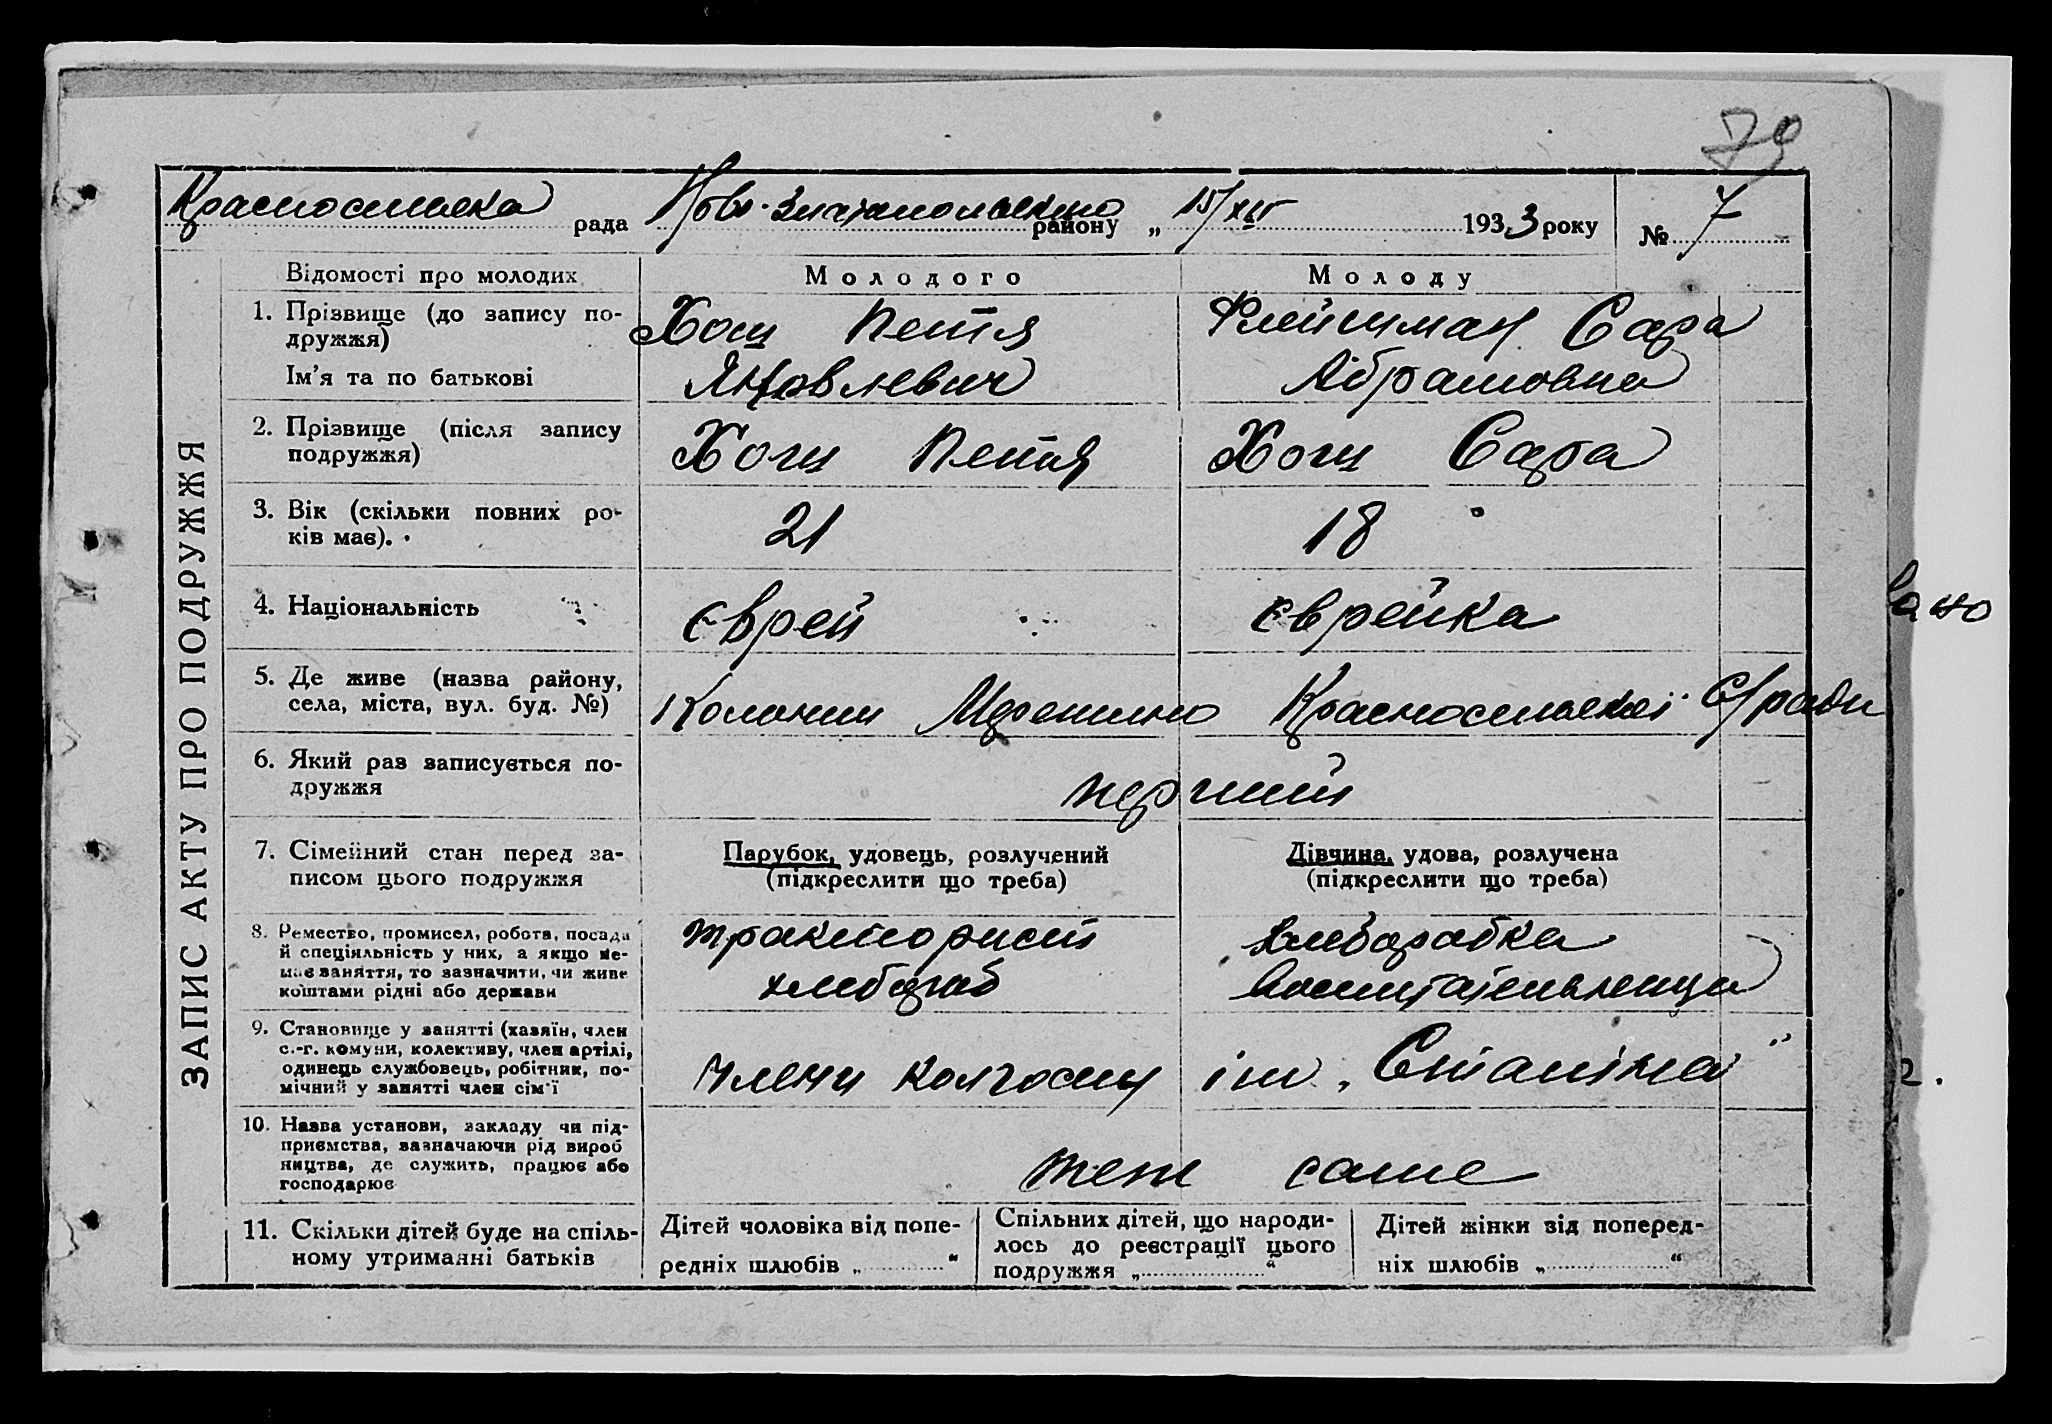 79
Красносільська рада Ново-Златопольського району „ 15/XII 1933 року № 7
ЗАПИС АКТУ ПРО ПОДРУЖЖЯ
Відомості про молодих
Молодого
Молоду
1. Прізвище (до запису по-
дружжя)
Ім’я та по батькові
Хощ Петя
Яковлевич
Флейшман Сара
Абрамовна
2. Прізвище (після запису
подружжя)
Хощ Петя
Хощ Сара
3. Вік (скільки повних ро-
ків має).
21
18
4. Національність
Єврей
Єврейка
5. Де живе (назва району,
села, міста, вул. буд. №)
Колонии Красносельскої С/ради
6. Який раз записується по-
дружжя
перший
7. Сімейний стан перед за-
писом цього подружжя
Парубок, удовець, розлучений
(підкреслити що треба)
Дівчина, удова, розлучена
(підкреслити що треба)
8. Ремество, промисел, робота, посада
й спеціяльність у них, а якщо не-
має заняття, то зазначити, чи живе
коштами рідні або держави
тракторист
хлебороб
9. Становище у занятті (хазяїн, член
с.-г. комуни, колективу, член артілі,
одинець службовець, робітник, по-
мічний у занятті член сім’ї
члени колгоспу ім. „Сталіна“
10. Назва установи, закладу чи під-
приємства, вазначаючи рід вироб
ництва, де служить, працює або
господарює
теж саме
11. Скільки дітей буде на спіль-
ному утриманні батьків
Дітей чоловіка від попе-
редніх шлюбів „ “
Спільних дітей, що народи-
лось до реєстрації цього
подружжя „ “
Дітей жінки від поперед-
ніх шлюбів „ “